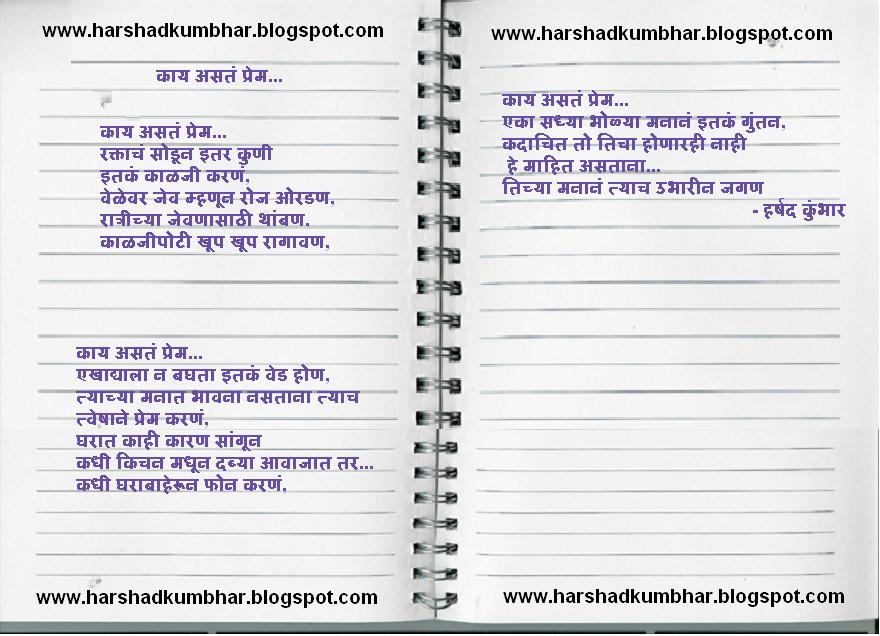 www.harshadkumbhar.blogspot.com
काय असतं प्रेम...
काय असतं प्रेम...
रक्ताचं सोडून इतर कुणी
इतकं काळजी करणं,
वेळेवर जेव म्हणून रोज ओरडण,
रात्रीच्या जेवणासाठी थांबण,
काळजीपोटी खूप खूप रागावण,
काय असतं प्रेम...
एखाद्याला न बघता इतकं वेड होण,
त्याच्या मनात भावना नसताना त्याच
त्वेषाने प्रेम करणं,
घरात काही कारण सांगून
कधी किचन मधून दब्या आवाजात तर...
कधी घराबाहेरून फोन करणं,
www.harshadkumbhar.blogspot.com
www.harshadkumbhar.blogspot.com
काय असतं प्रेम...
एका सध्या भोळ्या मनानं इतकं गुंतन,
कदाचित तो तिचा होणारही नाही
हे माहित असताना...
तिच्या मनानं त्याच उभारीन जगण
- हर्षद कुंभार
www.harshadkumbhar.blogspot.com